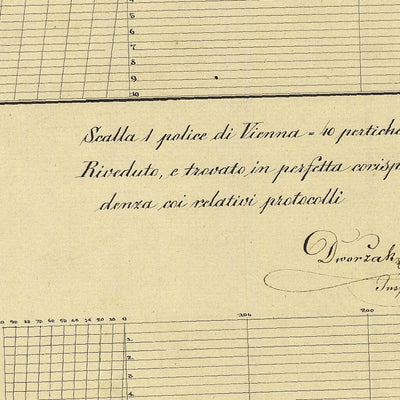 5
6
7
8
9
10
Scalla 1 police di Vienna = 40 pertiche
Riveduto, e trovato in perfetta corisp
denza coi relativi protocolli
Dworzak
Insp
90 80 70 60 50 40 30 20 10 0 204 200
1
2
3
4
5